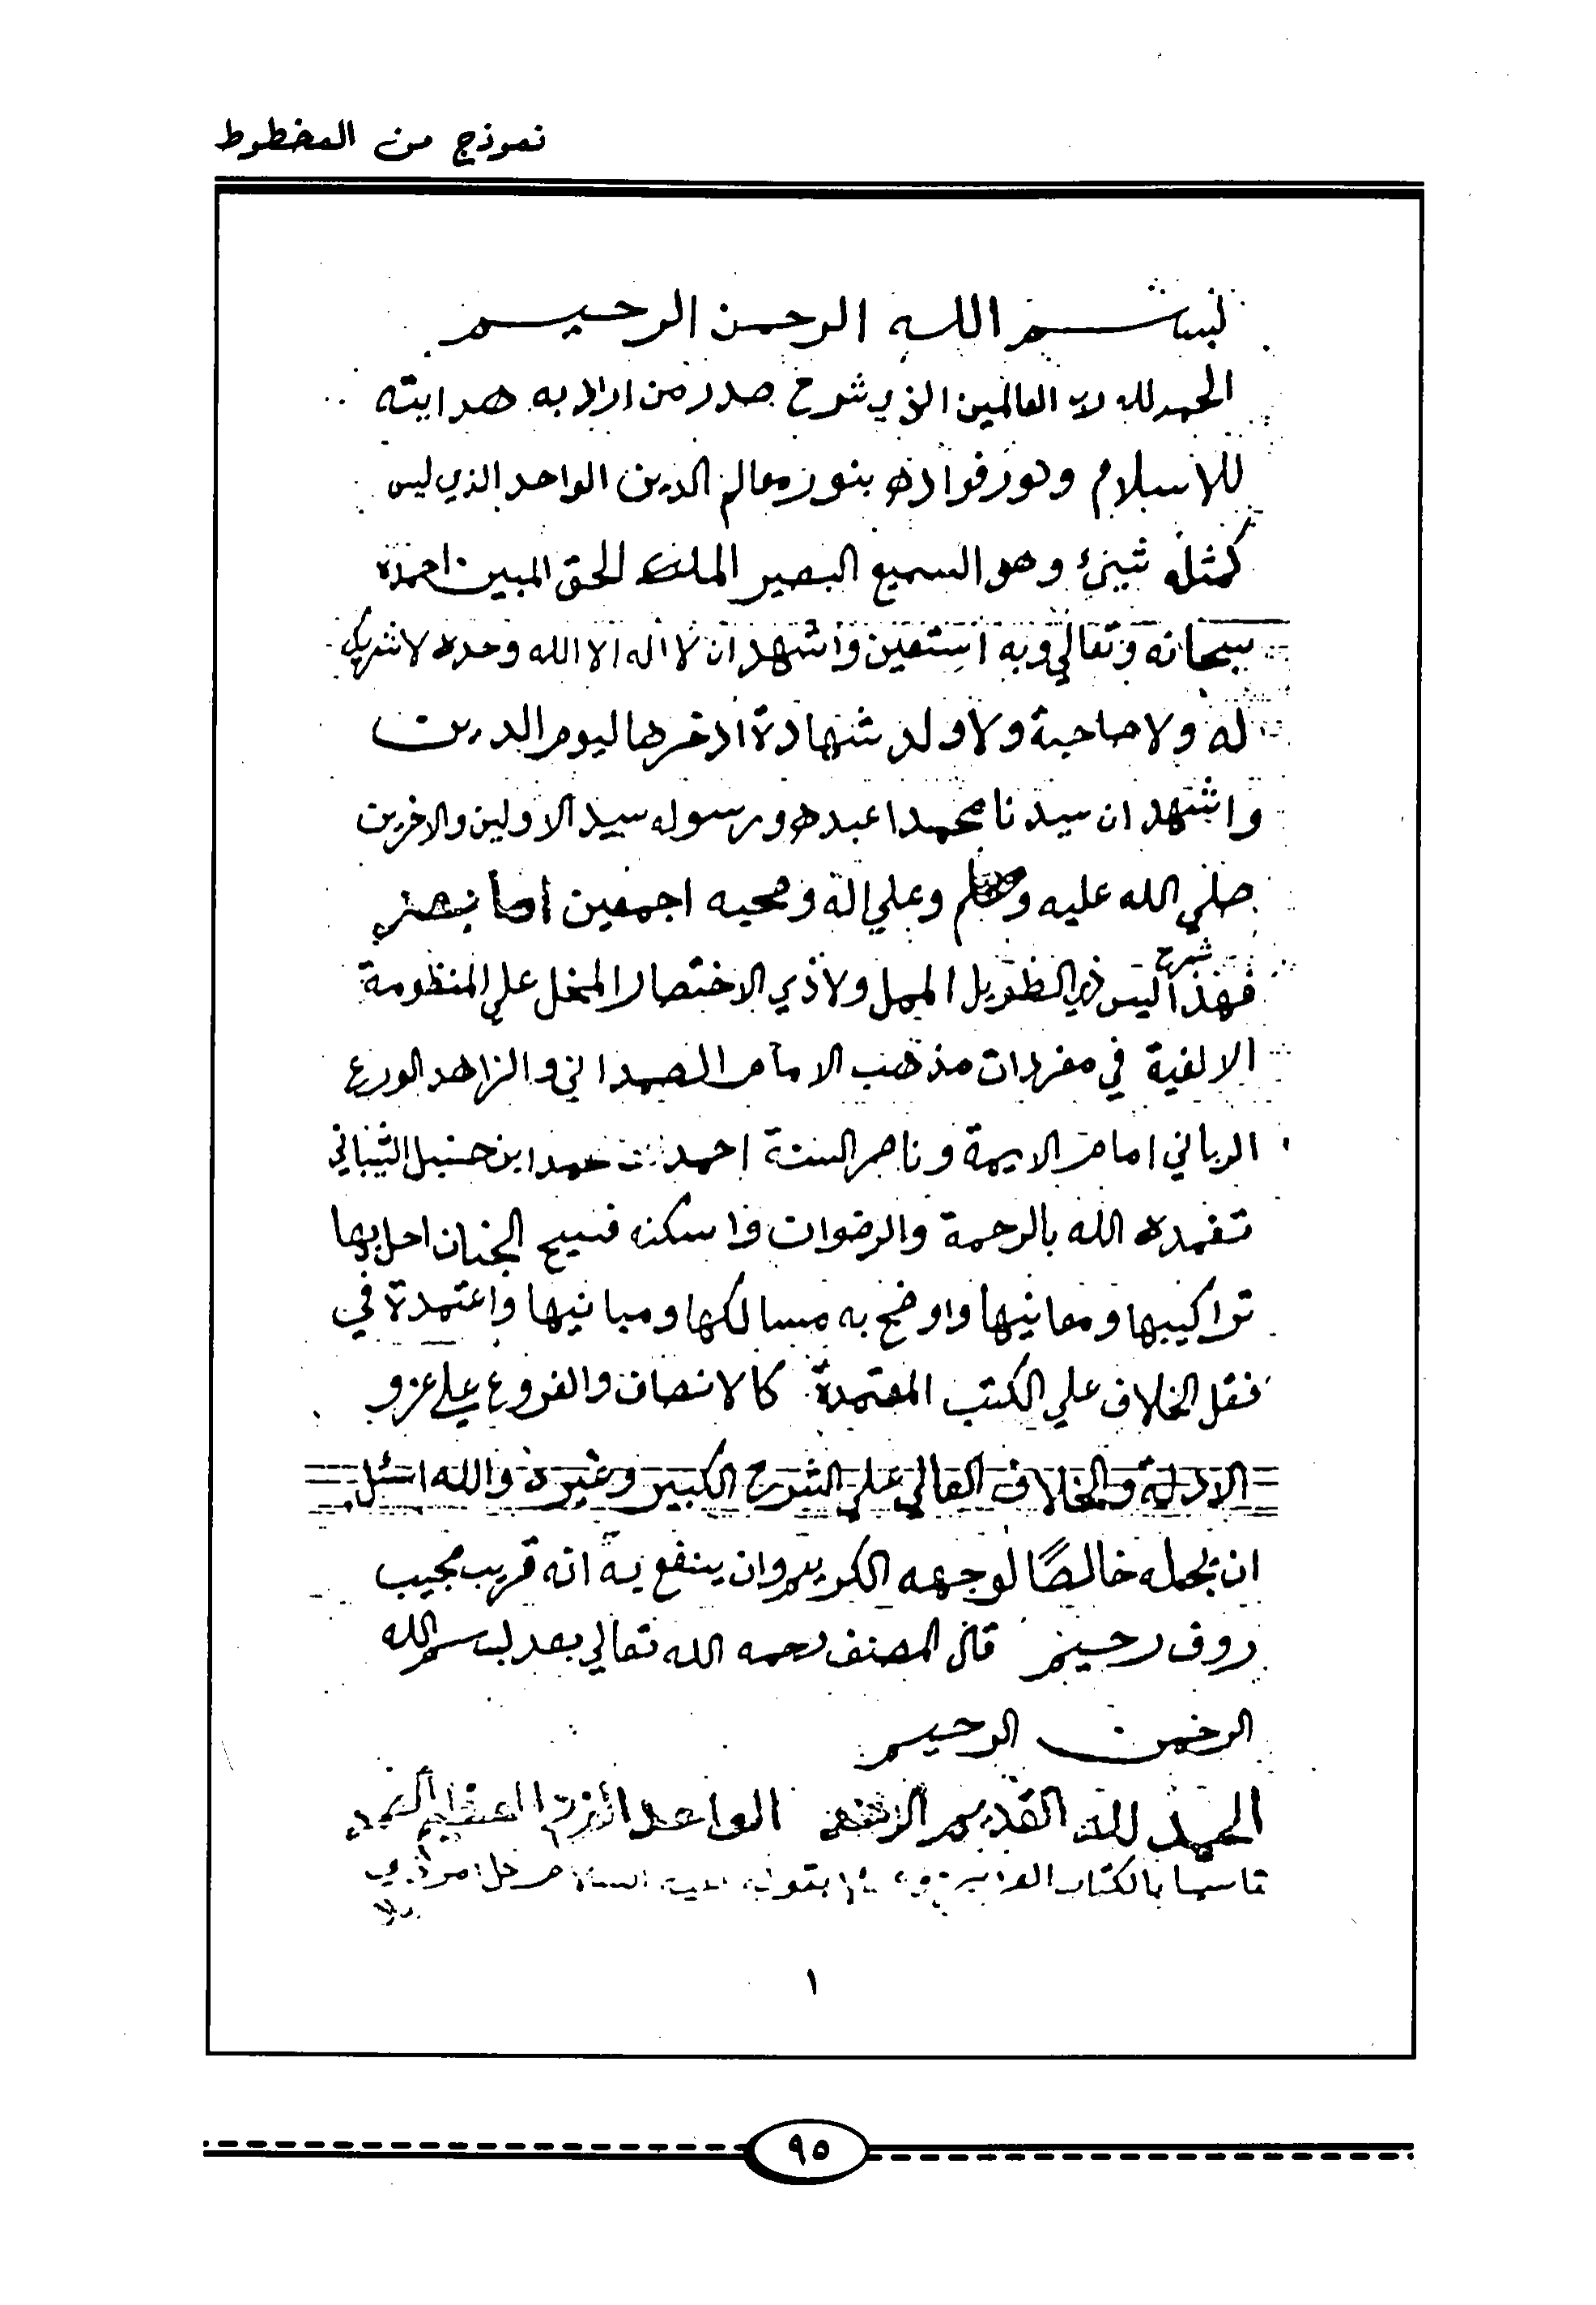 نموذج من المخطوط
بسم الله الرحمن الرحيم
الحمد لله رب العالمين الذي شرح صدر من اراد به هدايته
للاسلام ونور فواده بنور معالم الدين الواحد الذي ليس
كمثله شيئ وهو السميع البصير الملك الحق المبين احمده
سبحانه وتعالي وبه استعين واشهد ان لا اله الا الله وحده لا شريك
له ولا صاحبة ولا ولد شهادة ادخرها ليوم الدين
واشهد ان سيدنا محمدا عبده ورسوله سيد الاولين والاخرين
صلي الله عليه وسلم وعلي اله وصحبه اجمعين اما بعد
فهذا شرح ليس ذي التطويل الممل ولا ذي الاختصار المخل علي المنظومة
الالفية في مفردات مذهب الامام الصمداني والزاهد الورع
الرباني امام الايمة وناصر السنة احمد بن محمد ابن حنبل الشيباني
تغمده الله بالرحمة والرضوان واسكنه فسيح الجنان احل بها
تراكيبها ومعانيها واوضح به مسالكها ومبانيها واعتمدة في
نقل الخلاف علي الكتب المعتمدة كالانصاف والفروع علي عزو
الادلة والخلاف العالي علي الشرح الكبير وغيره والله اسئل
ان يجعله خالصًا لوجهه الكريم وان ينفع به انه قريب مجيب
روف رحيم قال المصنف رحمه الله تعالي بعد بسم الله
الرحمن الرحيم
الحمد لله القديم الواحد الفرد العظيم الصمد
تاسيا بالكتاب العزيز بقوله عليه السلام كل امر ذي
بال
١
٩٥